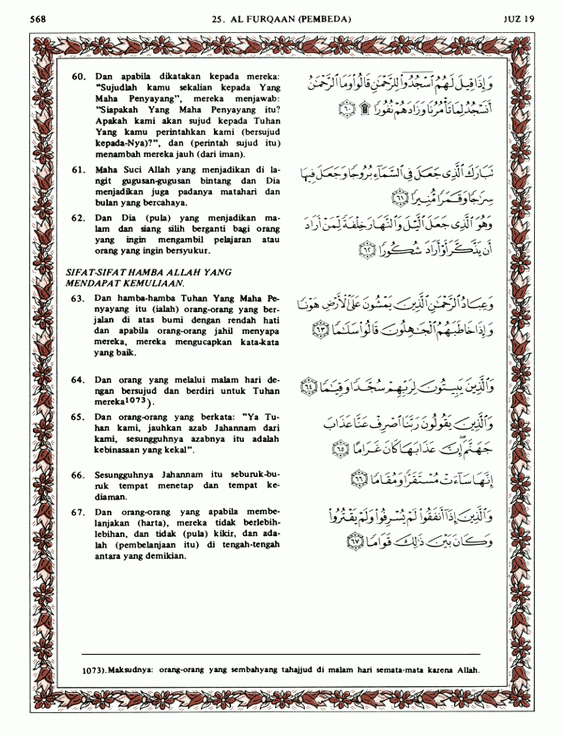 568
25. AL FURQAAN (PEMBEDA)
JUZ 19
60. Dan apabila dikatakan kepada mereka:
"Sujudlah kamu sekalian kepada Yang
Maha Penyayang", mereka menjawab:
"Siapakah Yang Maha Penyayang itu?
Apakah kami akan sujud kepada Tuhan
Yang kamu perintahkan kami (bersujud
kepada-Nya)?", dan (perintah sujud itu)
menambah mereka jauh (dari iman).
وَإِذَا قِيلَ لَهُمُ ٱسْجُدُوا۟ لِلرَّحْمَٰنِ قَالُوا۟ وَمَا ٱلرَّحْمَٰنُ
أَنَسْجُدُ لِمَا تَأْمُرُنَا وَزَادَهُمْ نُفُورًا ۩ ٦٠
61. Maha Suci Allah yang menjadikan di la-
ngit gugusan-gugusan bintang dan Dia
menjadikan juga padanya matahari dan
bulan yang bercahaya.
تَبَارَكَ ٱلَّذِى جَعَلَ فِى ٱلسَّمَآءِ بُرُوجًا وَجَعَلَ فِيهَا
سِرَٰجًا وَقَمَرًا مُّنِيرًا ٦١
62. Dan Dia (pula) yang menjadikan ma-
lam dan siang silih berganti bagi orang
yang ingin mengambil pelajaran atau
orang yang ingin bersyukur.
وَهُوَ ٱلَّذِى جَعَلَ ٱلَّيْلَ وَٱلنَّهَارَ خِلْفَةً لِّمَنْ أَرَادَ
أَن يَذَّكَّرَ أَوْ أَرَادَ شُكُورًا ٦٢
SIFAT-SIFAT HAMBA ALLAH YANG
MENDAPAT KEMULIAAN.
63. Dan hamba-hamba Tuhan Yang Maha Pe-
nyayang itu (ialah) orang-orang yang ber-
jalan di atas bumi dengan rendah hati
dan apabila orang-orang jahil menyapa
mereka, mereka mengucapkan kata-kata
yang baik.
وَعِبَادُ ٱلرَّحْمَٰنِ ٱلَّذِينَ يَمْشُونَ عَلَى ٱلْأَرْضِ هَوْنًا
وَإِذَا خَاطَبَهُمُ ٱلْجَٰهِلُونَ قَالُوا۟ سَلَٰمًا ٦٣
64. Dan orang yang melalui malam hari de-
ngan bersujud dan berdiri untuk Tuhan
mereka1073).
وَٱلَّذِينَ يَبِيتُونَ لِرَبِّهِمْ سُجَّدًا وَقِيَٰمًا ٦٤
65. Dan orang-orang yang berkata: "Ya Tu-
han kami, jauhkan azab Jahannam dari
kami, sesungguhnya azabnya itu adalah
kebinasaan yang kekal".
وَٱلَّذِينَ يَقُولُونَ رَبَّنَا ٱصْرِفْ عَنَّا عَذَابَ
جَهَنَّمَ إِنَّ عَذَابَهَا كَانَ غَرَامًا ٦٥
66. Sesungguhnya Jahannam itu seburuk-bu-
ruk tempat menetap dan tempat ke-
diaman.
إِنَّهَا سَآءَتْ مُسْتَقَرًّا وَمُقَامًا ٦٦
67. Dan orang-orang yang apabila membe-
lanjakan (harta), mereka tidak berlebih-
lebihan, dan tidak (pula) kikir, dan ada-
lah (pembelanjaan itu) di tengah-tengah
antara yang demikian.
وَٱلَّذِينَ إِذَآ أَنفَقُوا۟ لَمْ يُسْرِفُوا۟ وَلَمْ يَقْتُرُوا۟
وَكَانَ بَيْنَ ذَٰلِكَ قَوَامًا ٦٧
1073).Maksudnya: orang-orang yang sembahyang tahajjud di malam hari semata-mata karena Allah.